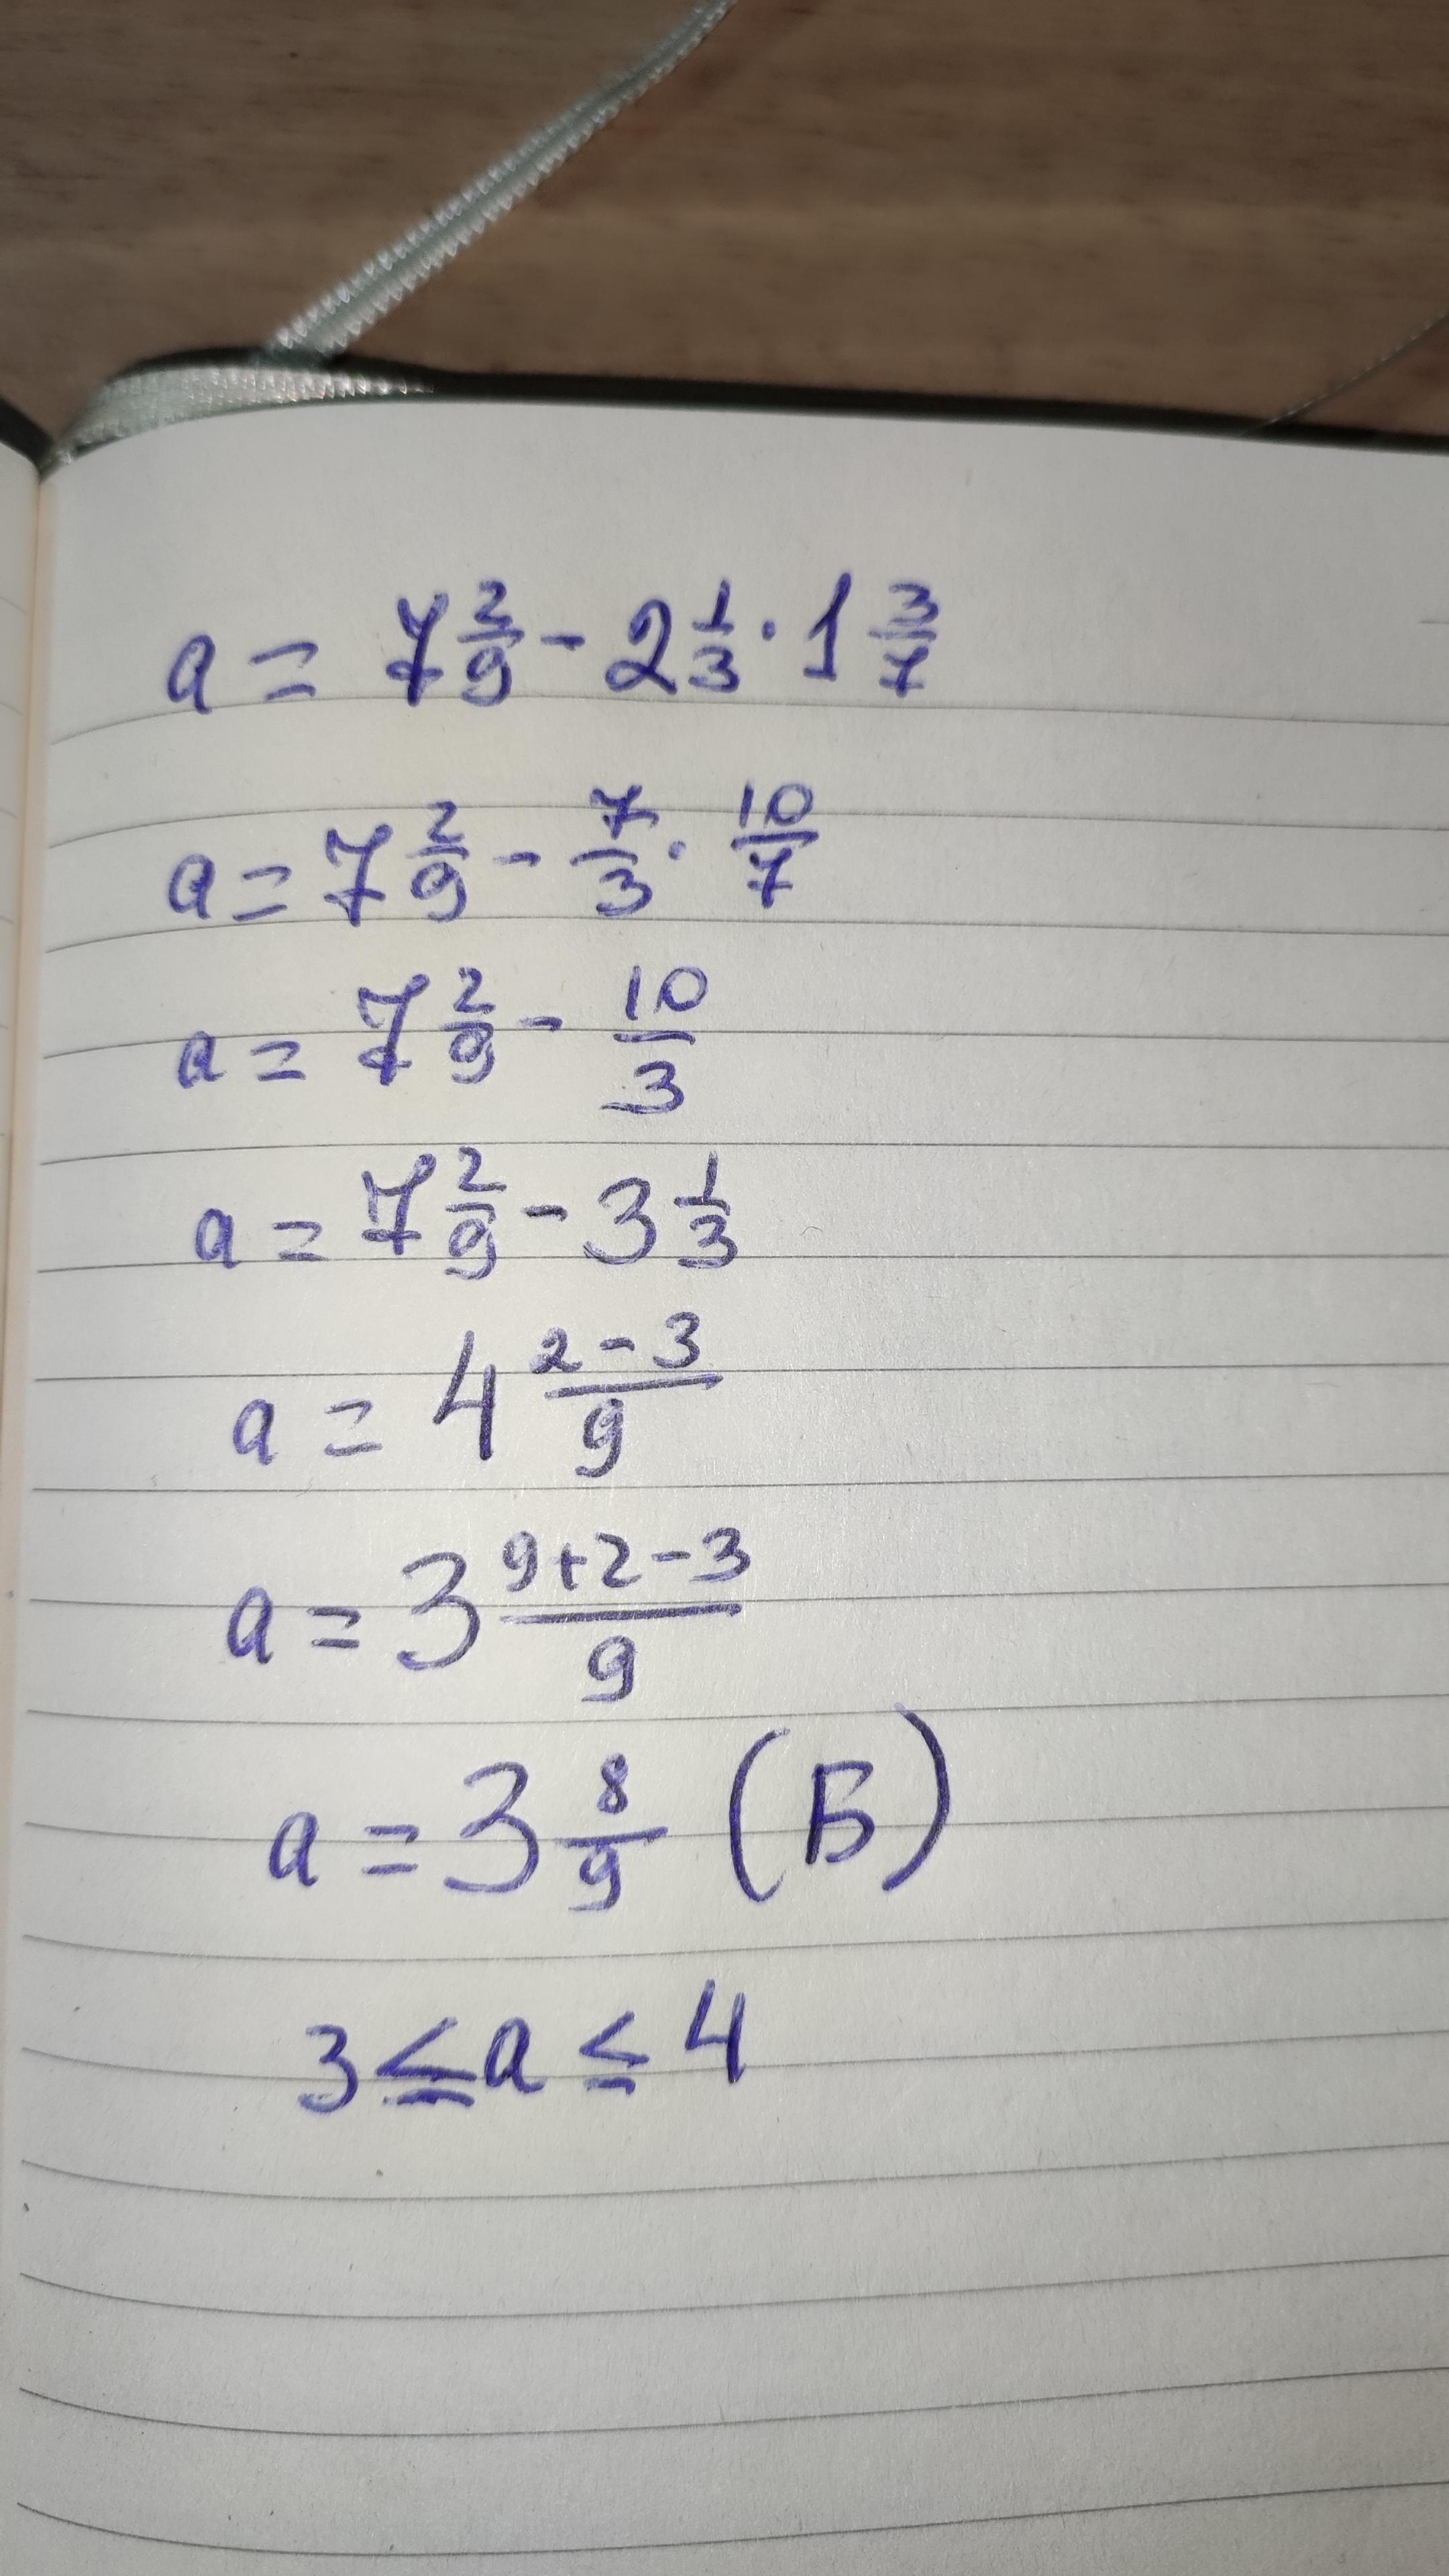 a = 7 2/9 - 2 1/3 · 1 3/7
a = 7 2/9 - 7/3 · 10/7
a = 7 2/9 - 10/3
a = 7 2/9 - 3 1/3
a = 4 (2-3)/9
a = 3 (9+2-3)/9
a = 3 8/9 (Б)
3 ≤ a ≤ 4